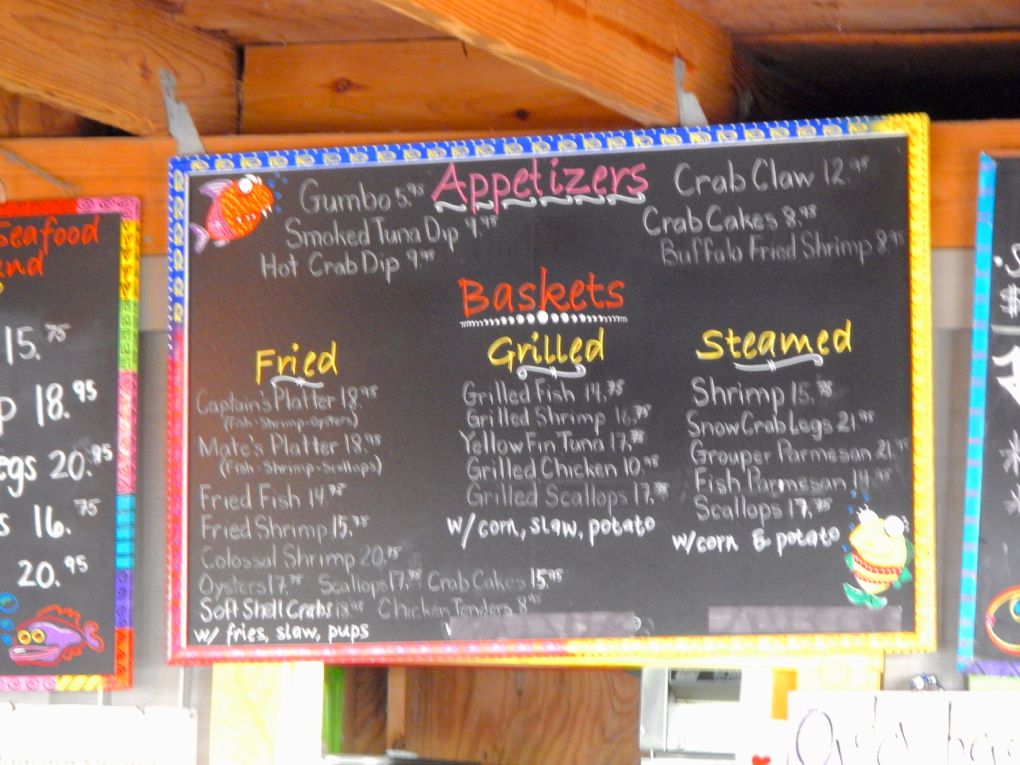 Seafood
15.75
18.95
20.95
16.75
20.95
Appetizers
Gumbo 5.95
Smoked Tuna Dip 9.95
Hot Crab Dip 9.95
Crab Claw 12.95
Crab Cakes 8.95
Buffalo Fried Shrimp 8.95
Baskets
Fried
Captain's Platter 18.95
(Fish-Shrimp-Oysters)
Mate's Platter 18.95
(Fish-Shrimp-Scallops)
Fried Fish 14.95
Fried Shrimp 15.75
Colossal Shrimp 20.75
Oysters 17.75 Scallops 17.75 Crab Cakes 15.95
Soft Shell Crabs 18.95 Chicken Tenders 8.95
w/ fries, slaw, pups
Grilled
Grilled Fish 14.75
Grilled Shrimp 16.75
Yellow Fin Tuna 17.75
Grilled Chicken 10.95
Grilled Scallops 17.75
w/corn, slaw, potato
Steamed
Shrimp 15.75
Snow Crab Legs 21.95
Grouper Parmesan 21.95
Fish Parmesan 14.95
Scallops 17.75
w/corn & potato